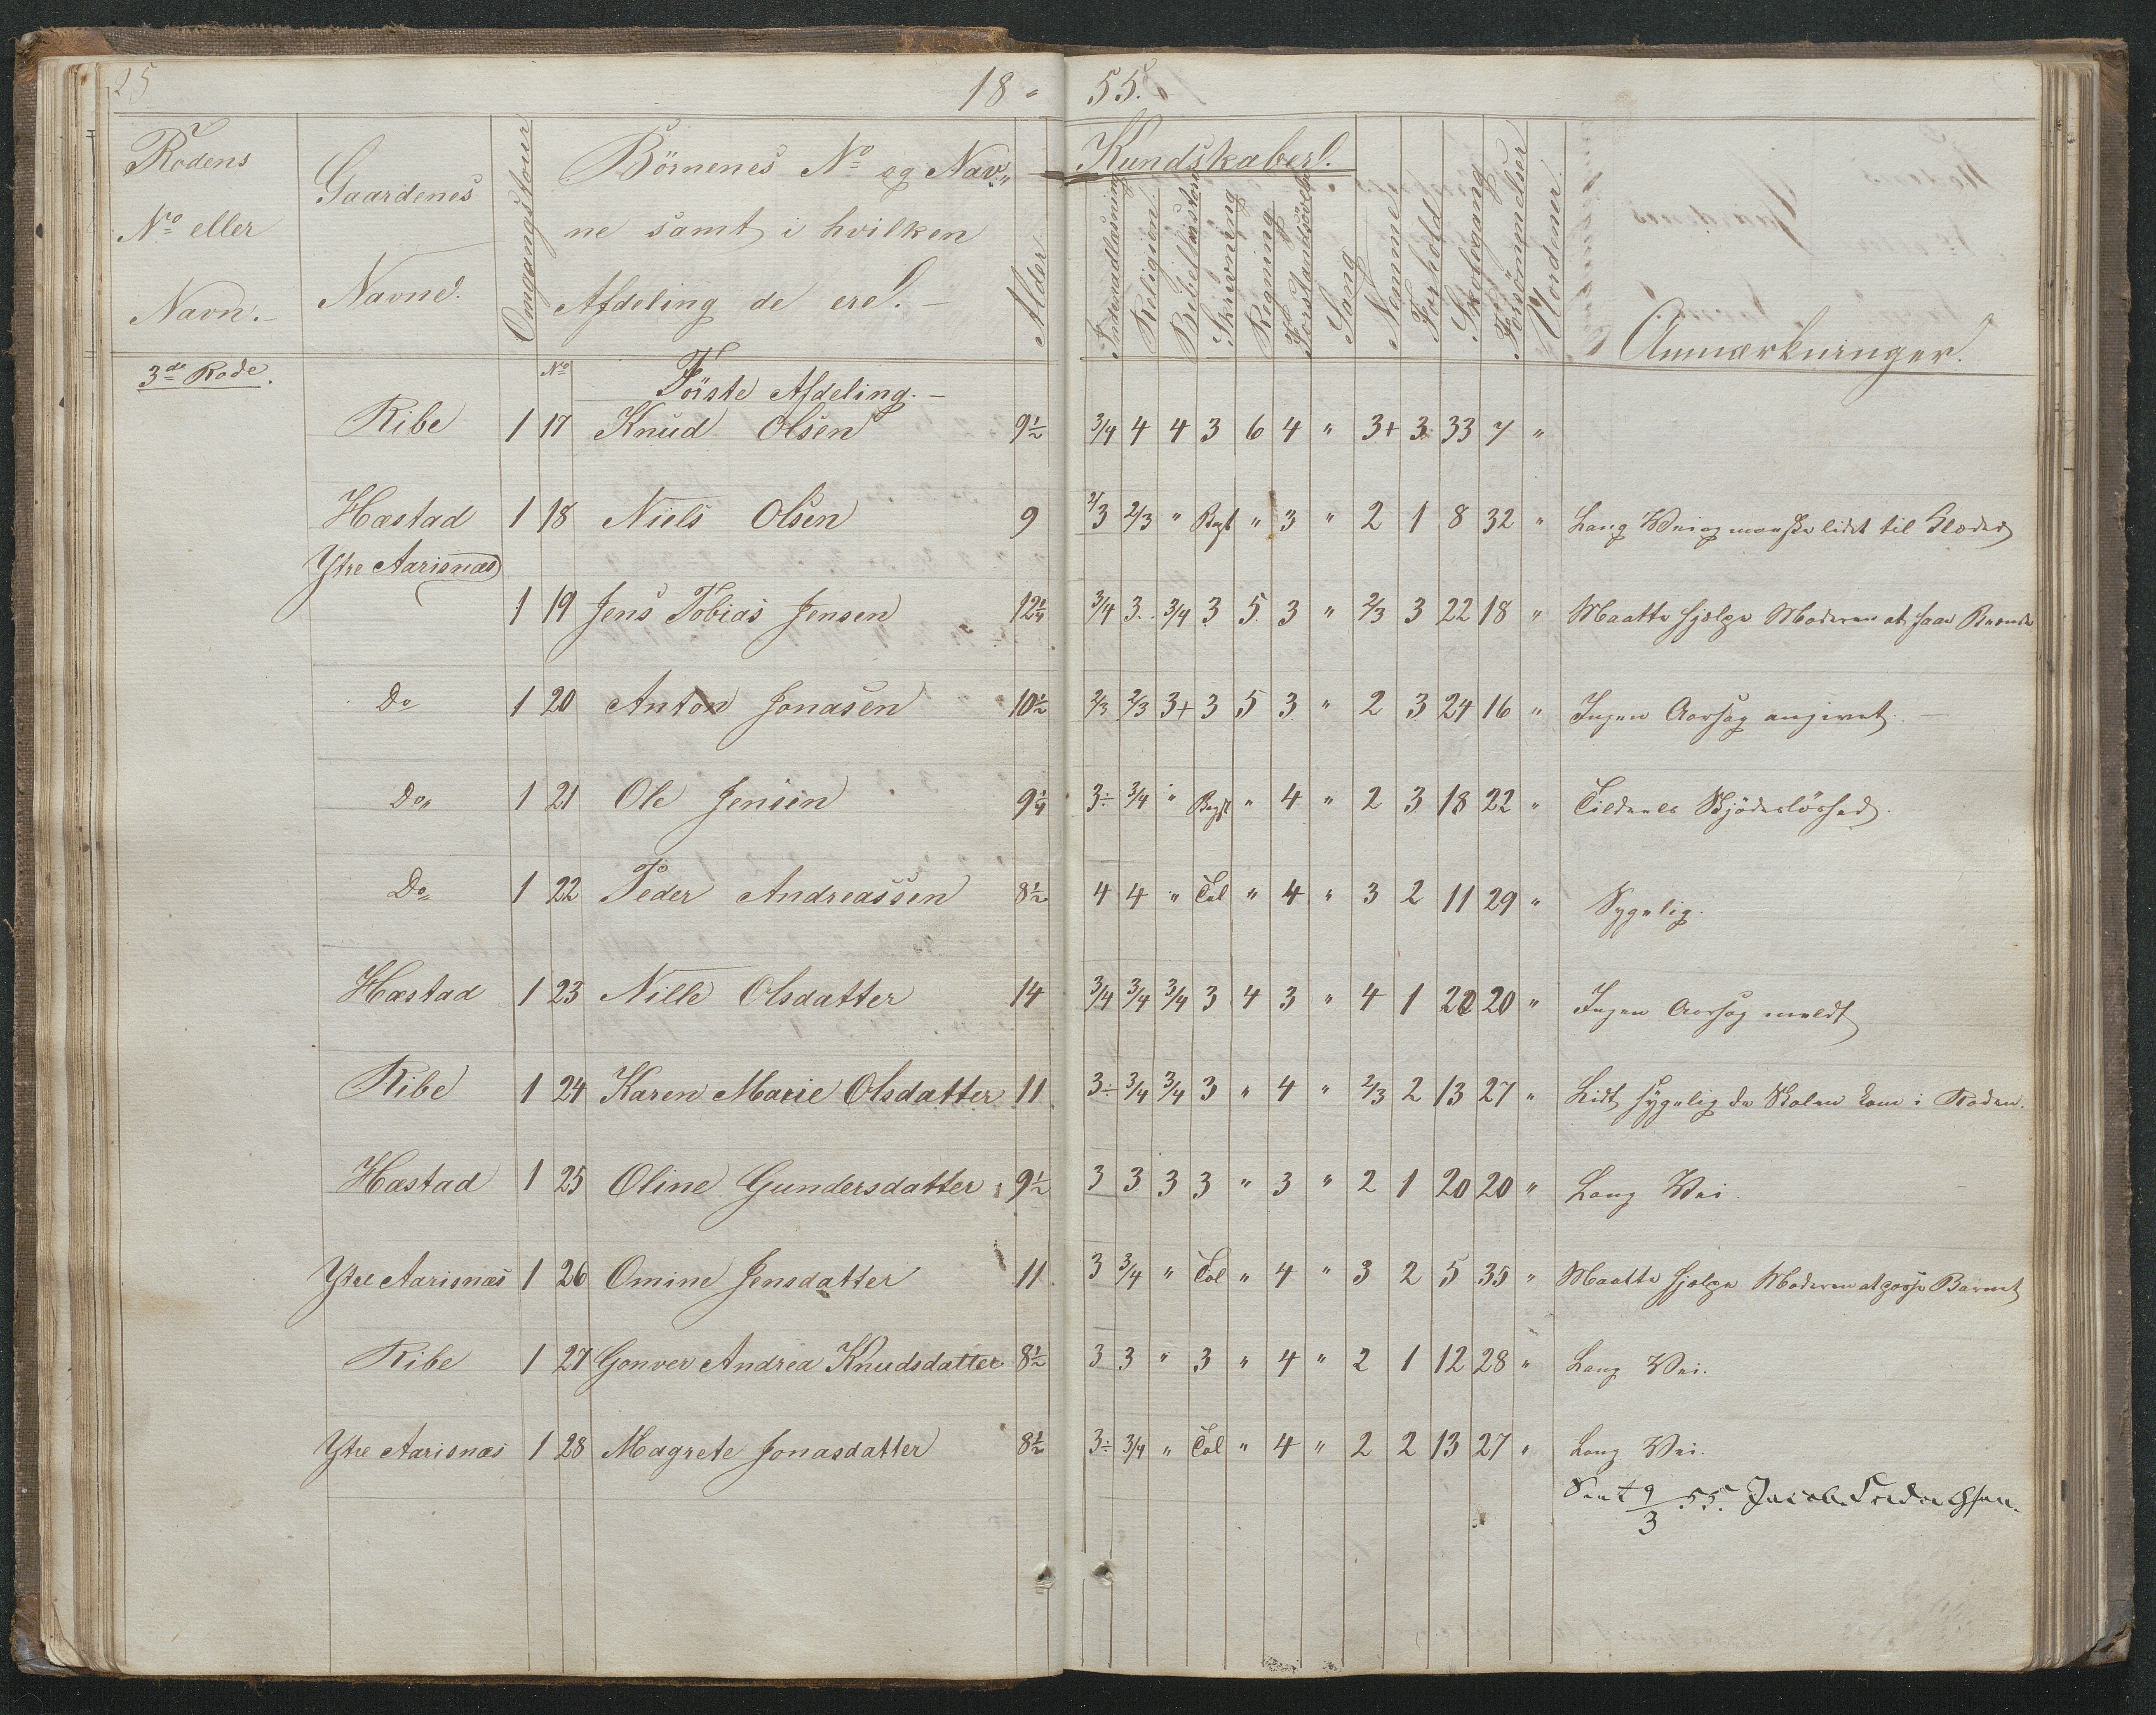 25
18 " 55.
Rodens
No eller
Navn.
Gaardenes
Navne.
Omgangs
Börnenes No og Nav„
ne samt i hvilken
Afdeling de ere. —
Alder
Kundskaber.
Indenadlæsning
Religion.
Skrivning
Regning
Sang
Nemme
Forhold
Skolegang
Forsömmelser
Anmærkninger.
3de Rode. No Förste Afdeling. —
Ribe 1 17 Knud Olsen 9½ 3/4 4 4 3 6 4 " 3+ 3 33 7 "
Hæstad 1 18 Niels Olsen 9 2/3 2/3 " Begt " 3 " 2 1 8 32 " Lang Vei og maaske lidet til Klæder
Ytre Aarisnæs
1 19 Jens Tobias Jensen 12¼ 3/4 3. 3/4 3 5 3 " 2/3 3 22 18 " Maatte hjælpe Moderen at faae Brænde
Do 1 20 Anton Jonasen 10½ 2/3 2/3 3+ 3 5 3 " 2 3 24 16 " Ingen Aarsag angivet. —
Do„ 1 21 Ole Jensen 9¼ 3÷ 3/4 " Begt " 4 " 2 3 18 22 " Tildeels Skjödeslöshed.
Do„ 1 22 Peder Andreassen 8½ 4 4 " Tal " 4 " 3 2 11 29 " Sygelig.
Hæstad 1 23 Nille Olsdatter 14 3/4 3/4 3/4 3 4 3 " 4 1 20 20 " Ingen Aarsag meldt
Ribe 1 24 Karen Marie Olsdatter 11 3÷ 3/4 3/4 3 " 4 " 2/3 2 13 27 " Lidt sygelig da Skolen kom i Roden.
Hæstad 1 25 Oline Gundersdatter 9½ 3 3 3 3 " 3 " 2 1 20 20 " Lang Vei.
Ytre Aarisnæs 1 26 Omine Jensdatter 11 3 3/4 " Tal " 4 " 3 2 5 35 " Maatte hjælpe Moderen at passe Barnet
Ribe 1 27 Gonver Andrea Knudsdatter 8½ 3 3 " 3 " 4 " 2 1 12 28 " Lang Vei.
Ytre Aarisnæs 1 28 Magrete Jonasdatter 8½ 3÷ 3/4 " Tal " 4 " 2 2 13 27 " Lang Vei.
9/3 55.